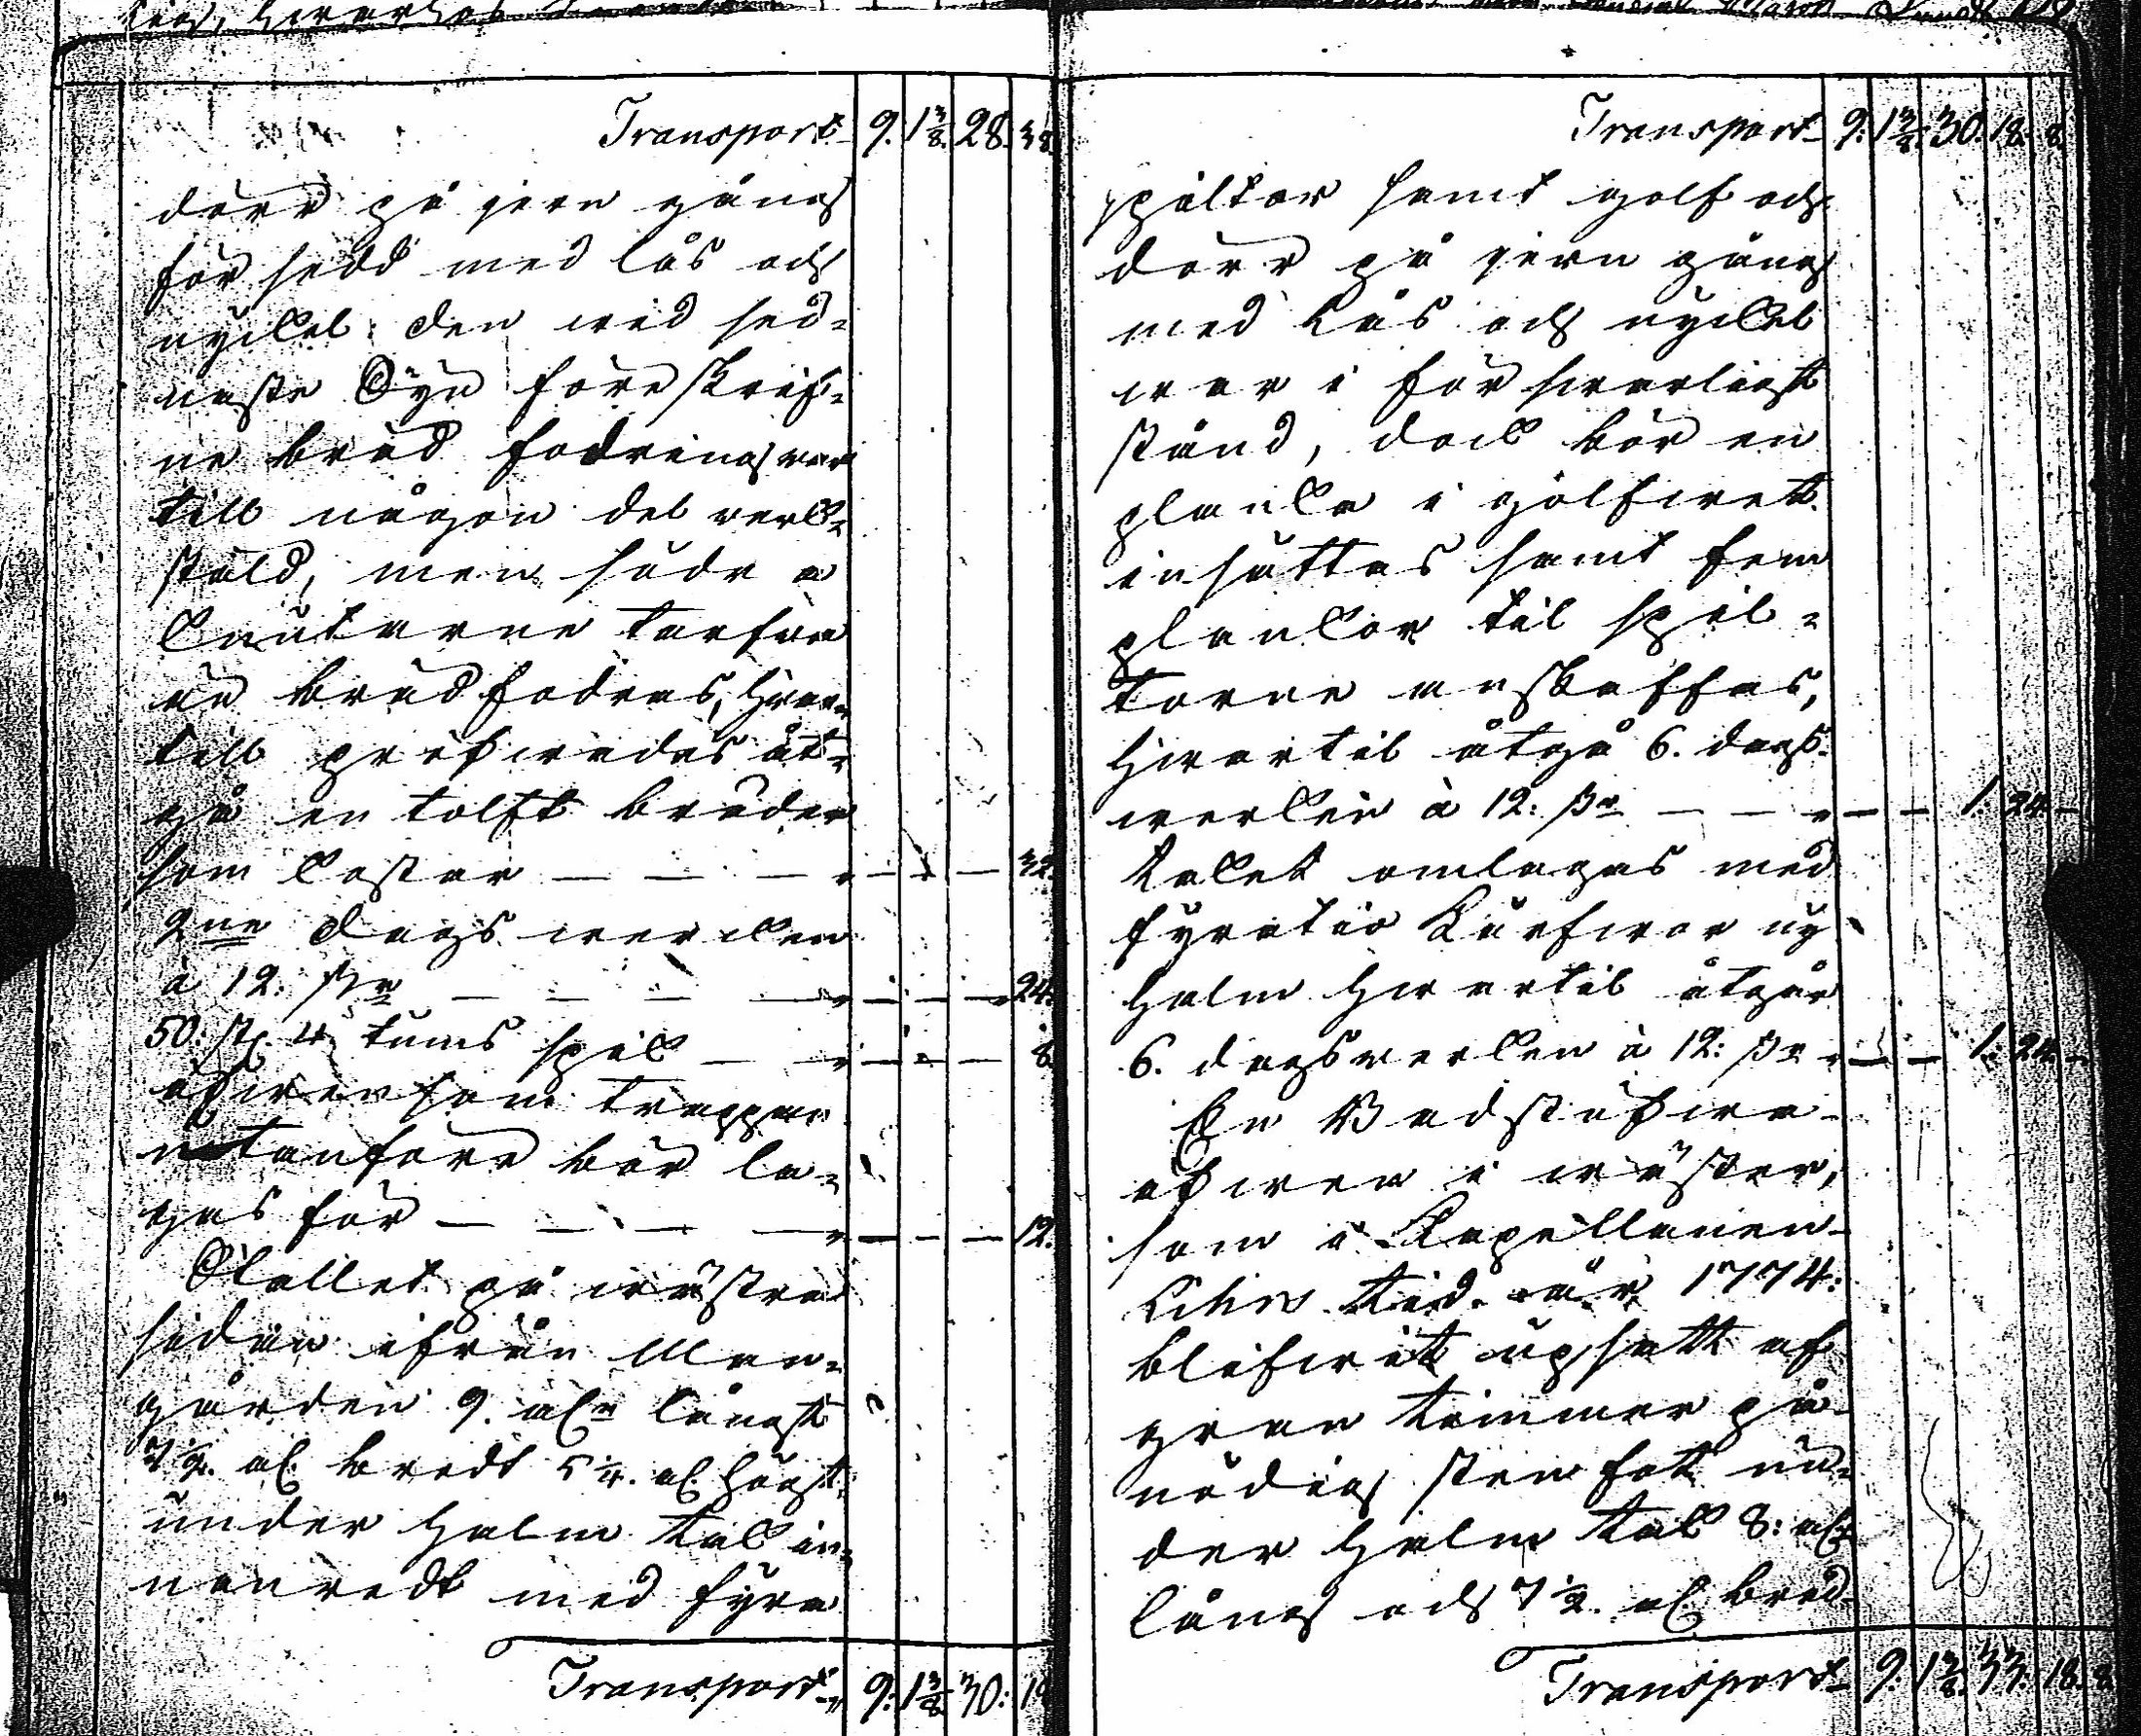 Transport 9. 1 3/8. 28. 38.
dörr på jern gång
försedd med lås och
nyckel: den wid sed-
naste Syn föreskrif-
ne bräd fodring war
till någon del verk-
stäld, men södra
knutarne tarfwa
än brädfodras, hwar-
till pröfwades åt-
gå en tolft bräder
som kostar — — — 32.
2ne dags wercken
à 12: s:r — — — 24.
50: st. 4 tums spik — — 8.
äfwen som trappan
utanföre bör la-
gas för — — — 12.
Stallet på wästra
sidan ifrån Man-
gården 9. aln långt
7 1/2. al. bredt 5 1/4. al. högt
under halm tak in-
nanredt med fyra
Transport 9: 1 3/8. 30: 18
Transport 9: 1 3/8. 30. 18. 8.
spältor samt golf och
dörr på jern gång
med Lås och nyckel
war i försvarligt
stånd, dock bör en
planka i golfwet
insättas samt fem
plankor til spil-
torne anskaffas,
hwartil åtgå 6. dags-
werken à 12: s:r — — — 1. 24. —
taket omlagas med
fyratio Kärfwor ny
halm hwartil åtgår
6. dagsverken à 12: s:r — — 1. 24. —
En Badstufwa
äfwen i wäster,
som i Kapellanen
tid. år 1774:
blifwit upsatt af
gran timmer på
nödig stenfot un-
der halm tak 8: al:r
lång och 7 1/2. al. bred
Transport 9. 1 3/8. 33. 18. 8.